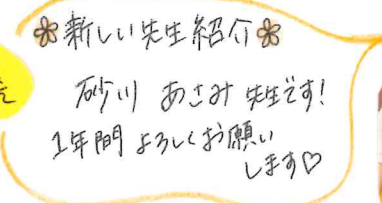 新しい先生紹介
砂川 あさみ 先生です!
1年間 よろしくお願い
します♡